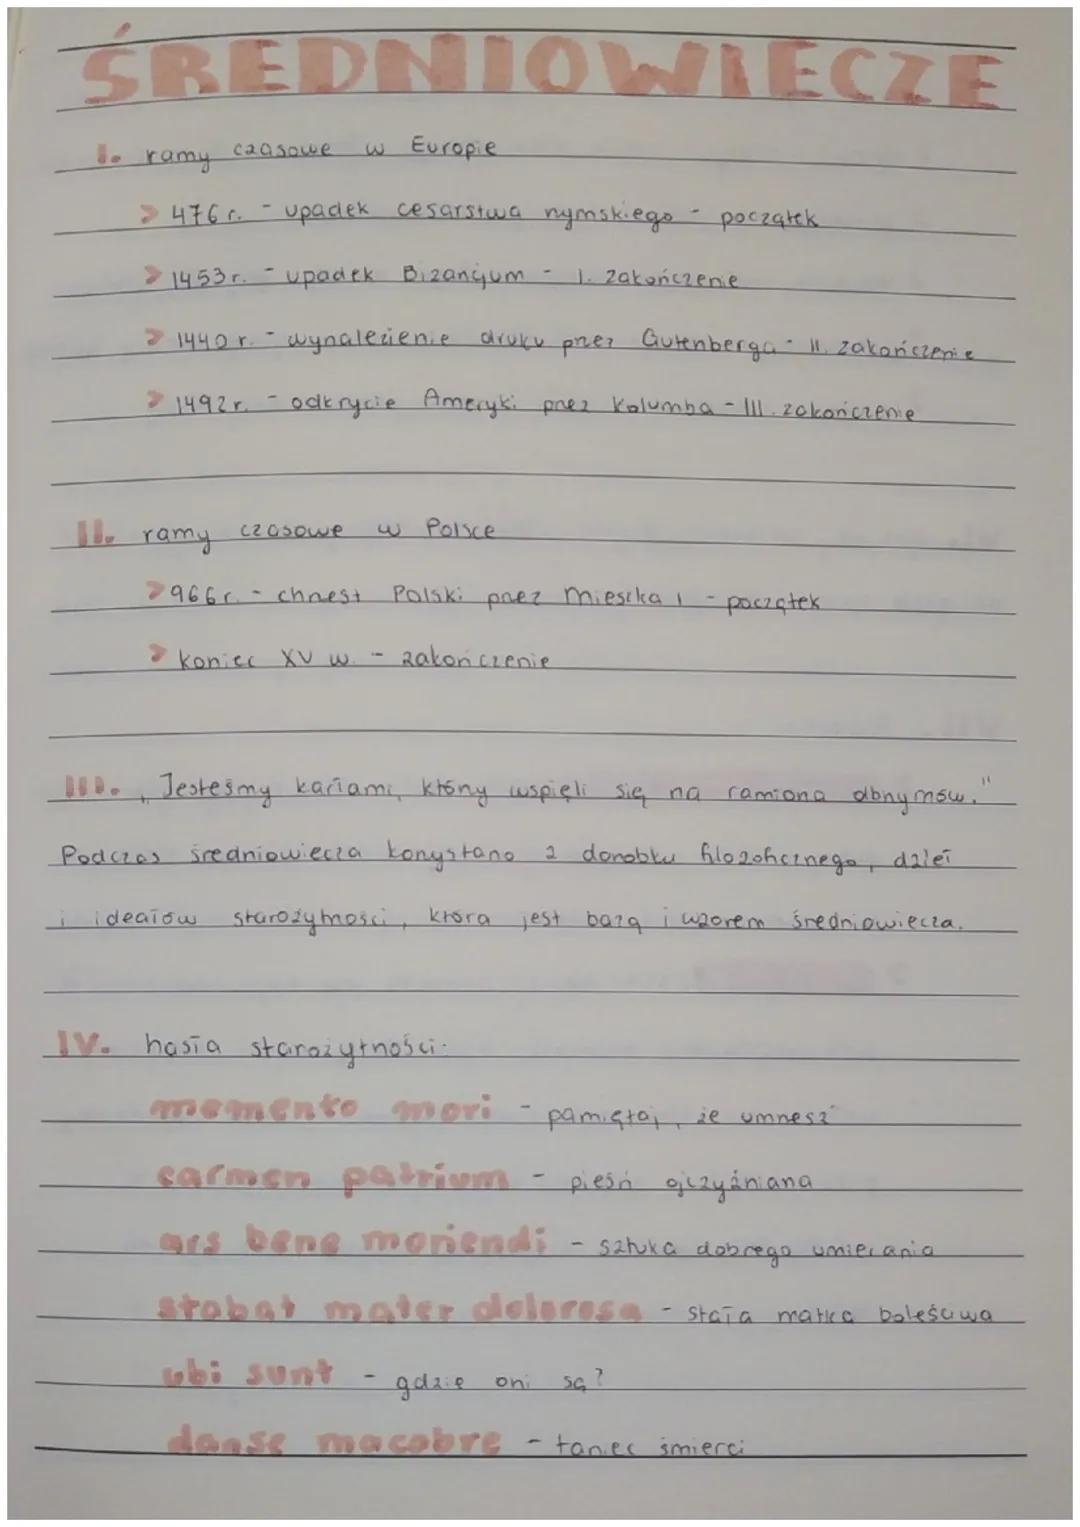 ŚREDNIOWIECZE
I. ramy czasowe w Europie
> 476 r. - upadek cesarstwa rzymskiego - początek
> 1453 r. - upadek Bizancjum - I. zakończenie
> 1440 r. - wynalezienie druku przez Gutenberga - II. zakończenie
> 1492 r. - odkrycie Ameryki przez Kolumba - III. zakończenie
II. ramy czasowe w Polsce
> 966 r. - chrzest Polski przez Mieszka I - początek
> koniec XV w. - zakończenie
III. „Jesteśmy karłami, którzy wspięli się na ramiona olbrzymów."
Podczas średniowiecza korzystano z dorobku filozoficznego, dzieł
i ideałów starożytności, która jest bazą i wzorem średniowiecza.
IV. hasła starożytności:
memento mori - pamiętaj, że umrzesz
carmen patrium - pieśń ojczyźniana
ars bene moriendi - sztuka dobrego umierania
stabat mater dolorosa - stała matka boleściwa
ubi sunt - gdzie oni są?
danse macabre - taniec śmierci